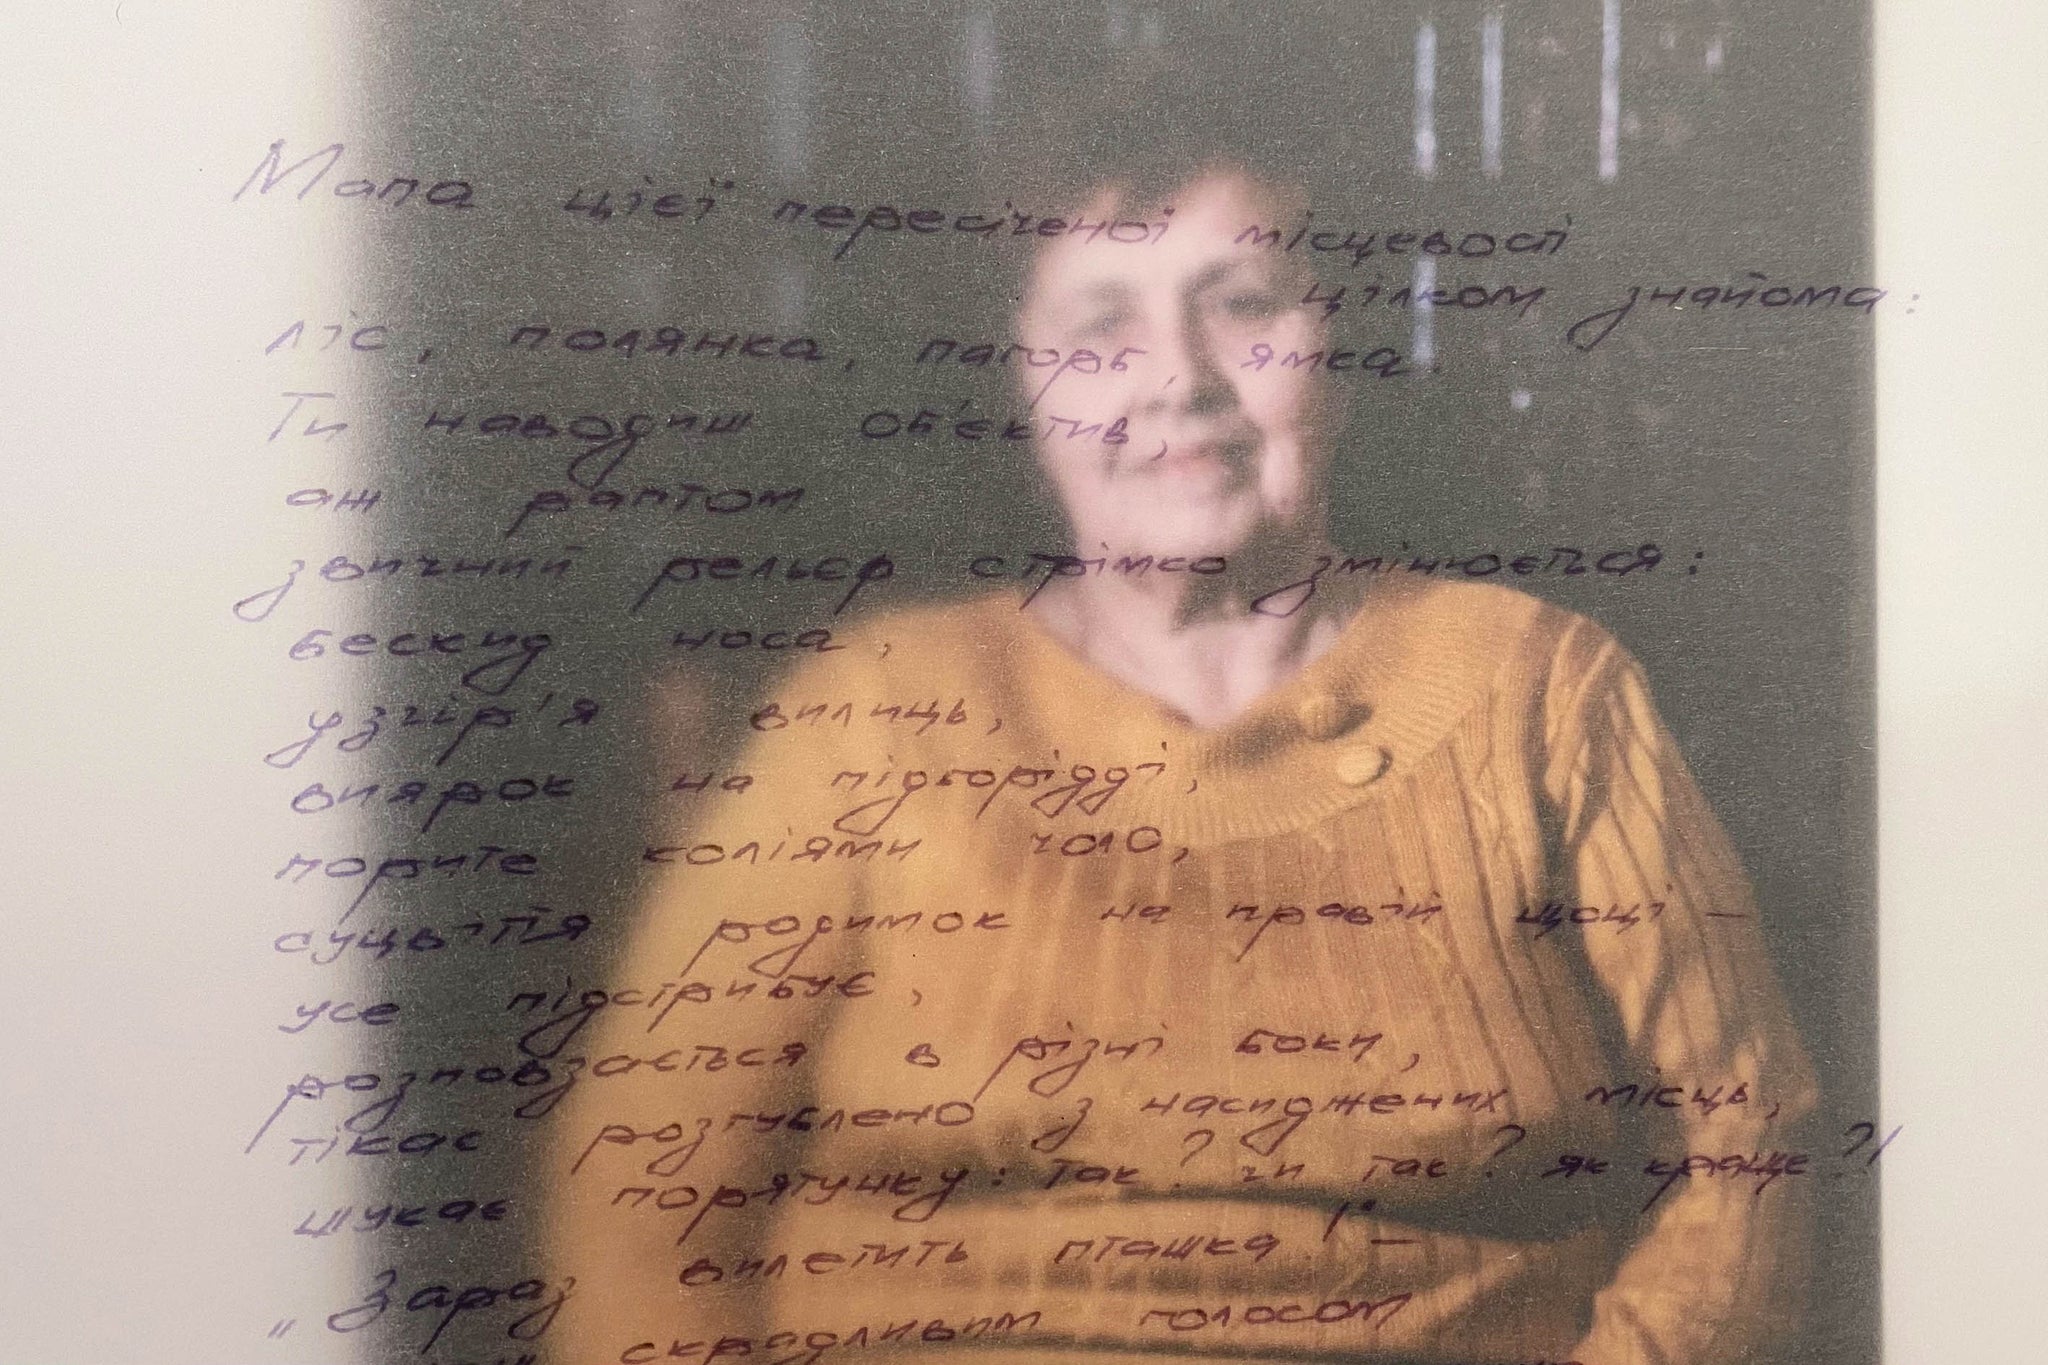 Мапа цієї пересіченої місцевості
цілком знайома:
ліс, полянка, пагорб, ямка.
Ти наводиш об'єктив,
аж раптом
звичний рельєф стрімко змінюється:
бескид носа,
узгір'я вилиць,
виярок на підборідді,
порите коліями чоло,
суцвіття родимок на правій щоці —
усе підстрибує,
розповзається в різні боки,
тікає розгублено з насиджених місць,
шукає порятунку: так? чи так? як краще?!
„Зараз вилетить пташка!" —
скрадливим голосом